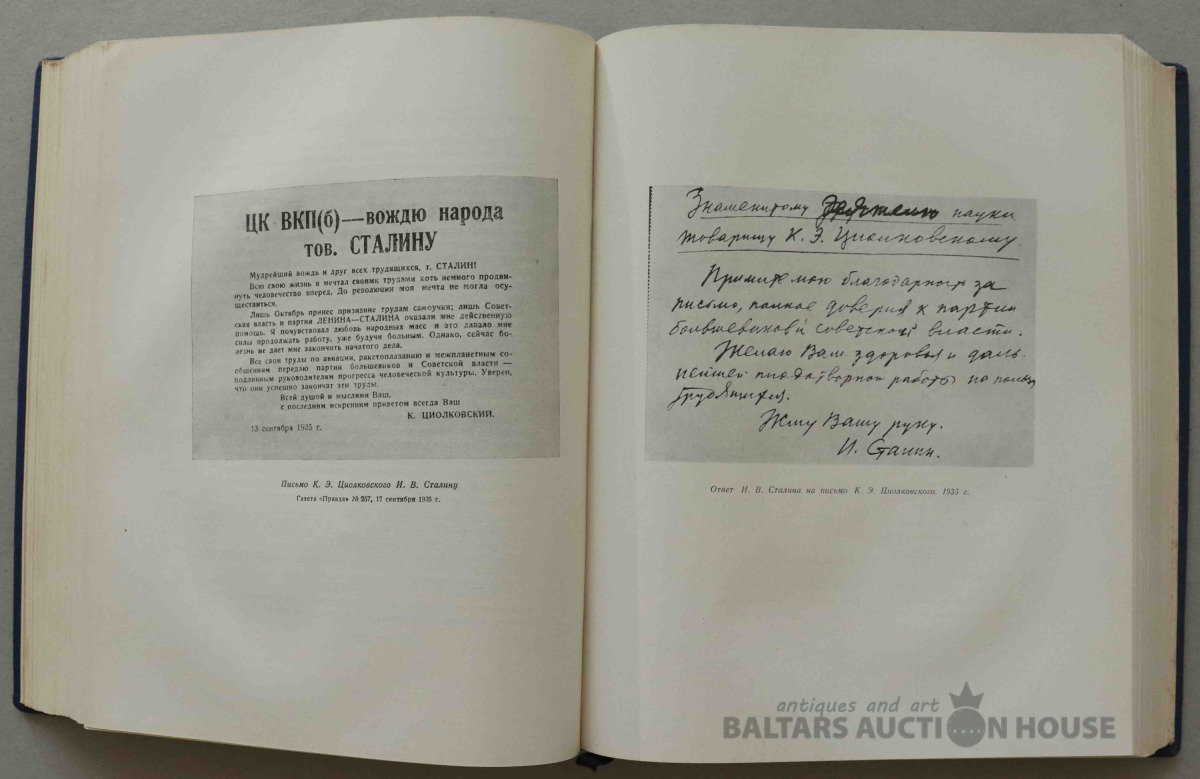 ЦК ВКП(б)—вождю народа
тов. СТАЛИНУ
Мудрейший вождь и друг всех трудящихся, т. СТАЛИН!
Всю свою жизнь я мечтал своими трудами хоть немного продви-
нуть человечество вперед. До революции моя мечта не могла осу-
ществиться.
Лишь Октябрь принес признание трудам самоучки; лишь Совет-
ская власть и партия ЛЕНИНА—СТАЛИНА оказали мне действенную
помощь. Я почувствовал любовь народных масс и это давало мне
силы продолжать работу, уже будучи больным. Однако, сейчас бо-
лезнь не дает мне закончить начатого дела.
Все свои труды по авиации, ракетоплаванию и межпланетным со-
общениям передаю партии большевиков и Советской власти —
подлинным руководителям прогресса человеческой культуры. Уверен,
что они успешно закончат эти труды.
Всей душой и мыслями Ваш,
с последним искренним приветом всегда Ваш
К. ЦИОЛКОВСКИЙ.
13 сентября 1935 г.
Письмо К. Э. Циолковского И. В. Сталину
Газета «Правда» № 257, 17 сентября 1935 г.
Знаменитому деятелю науки
товарищу К. Э. Циолковскому
Примите мою благодарность за
письмо, полное доверия к партии
большевиков и советской власти.
Желаю Вам здоровья и даль-
нейшей плодотворной работы на пользу
трудящихся.
Жму Вашу руку.
И. Сталин.
Ответ И. В. Сталина на письмо К. Э. Циолковского. 1935 г.
antiques and art
BALTARS AUCTION HOUSE